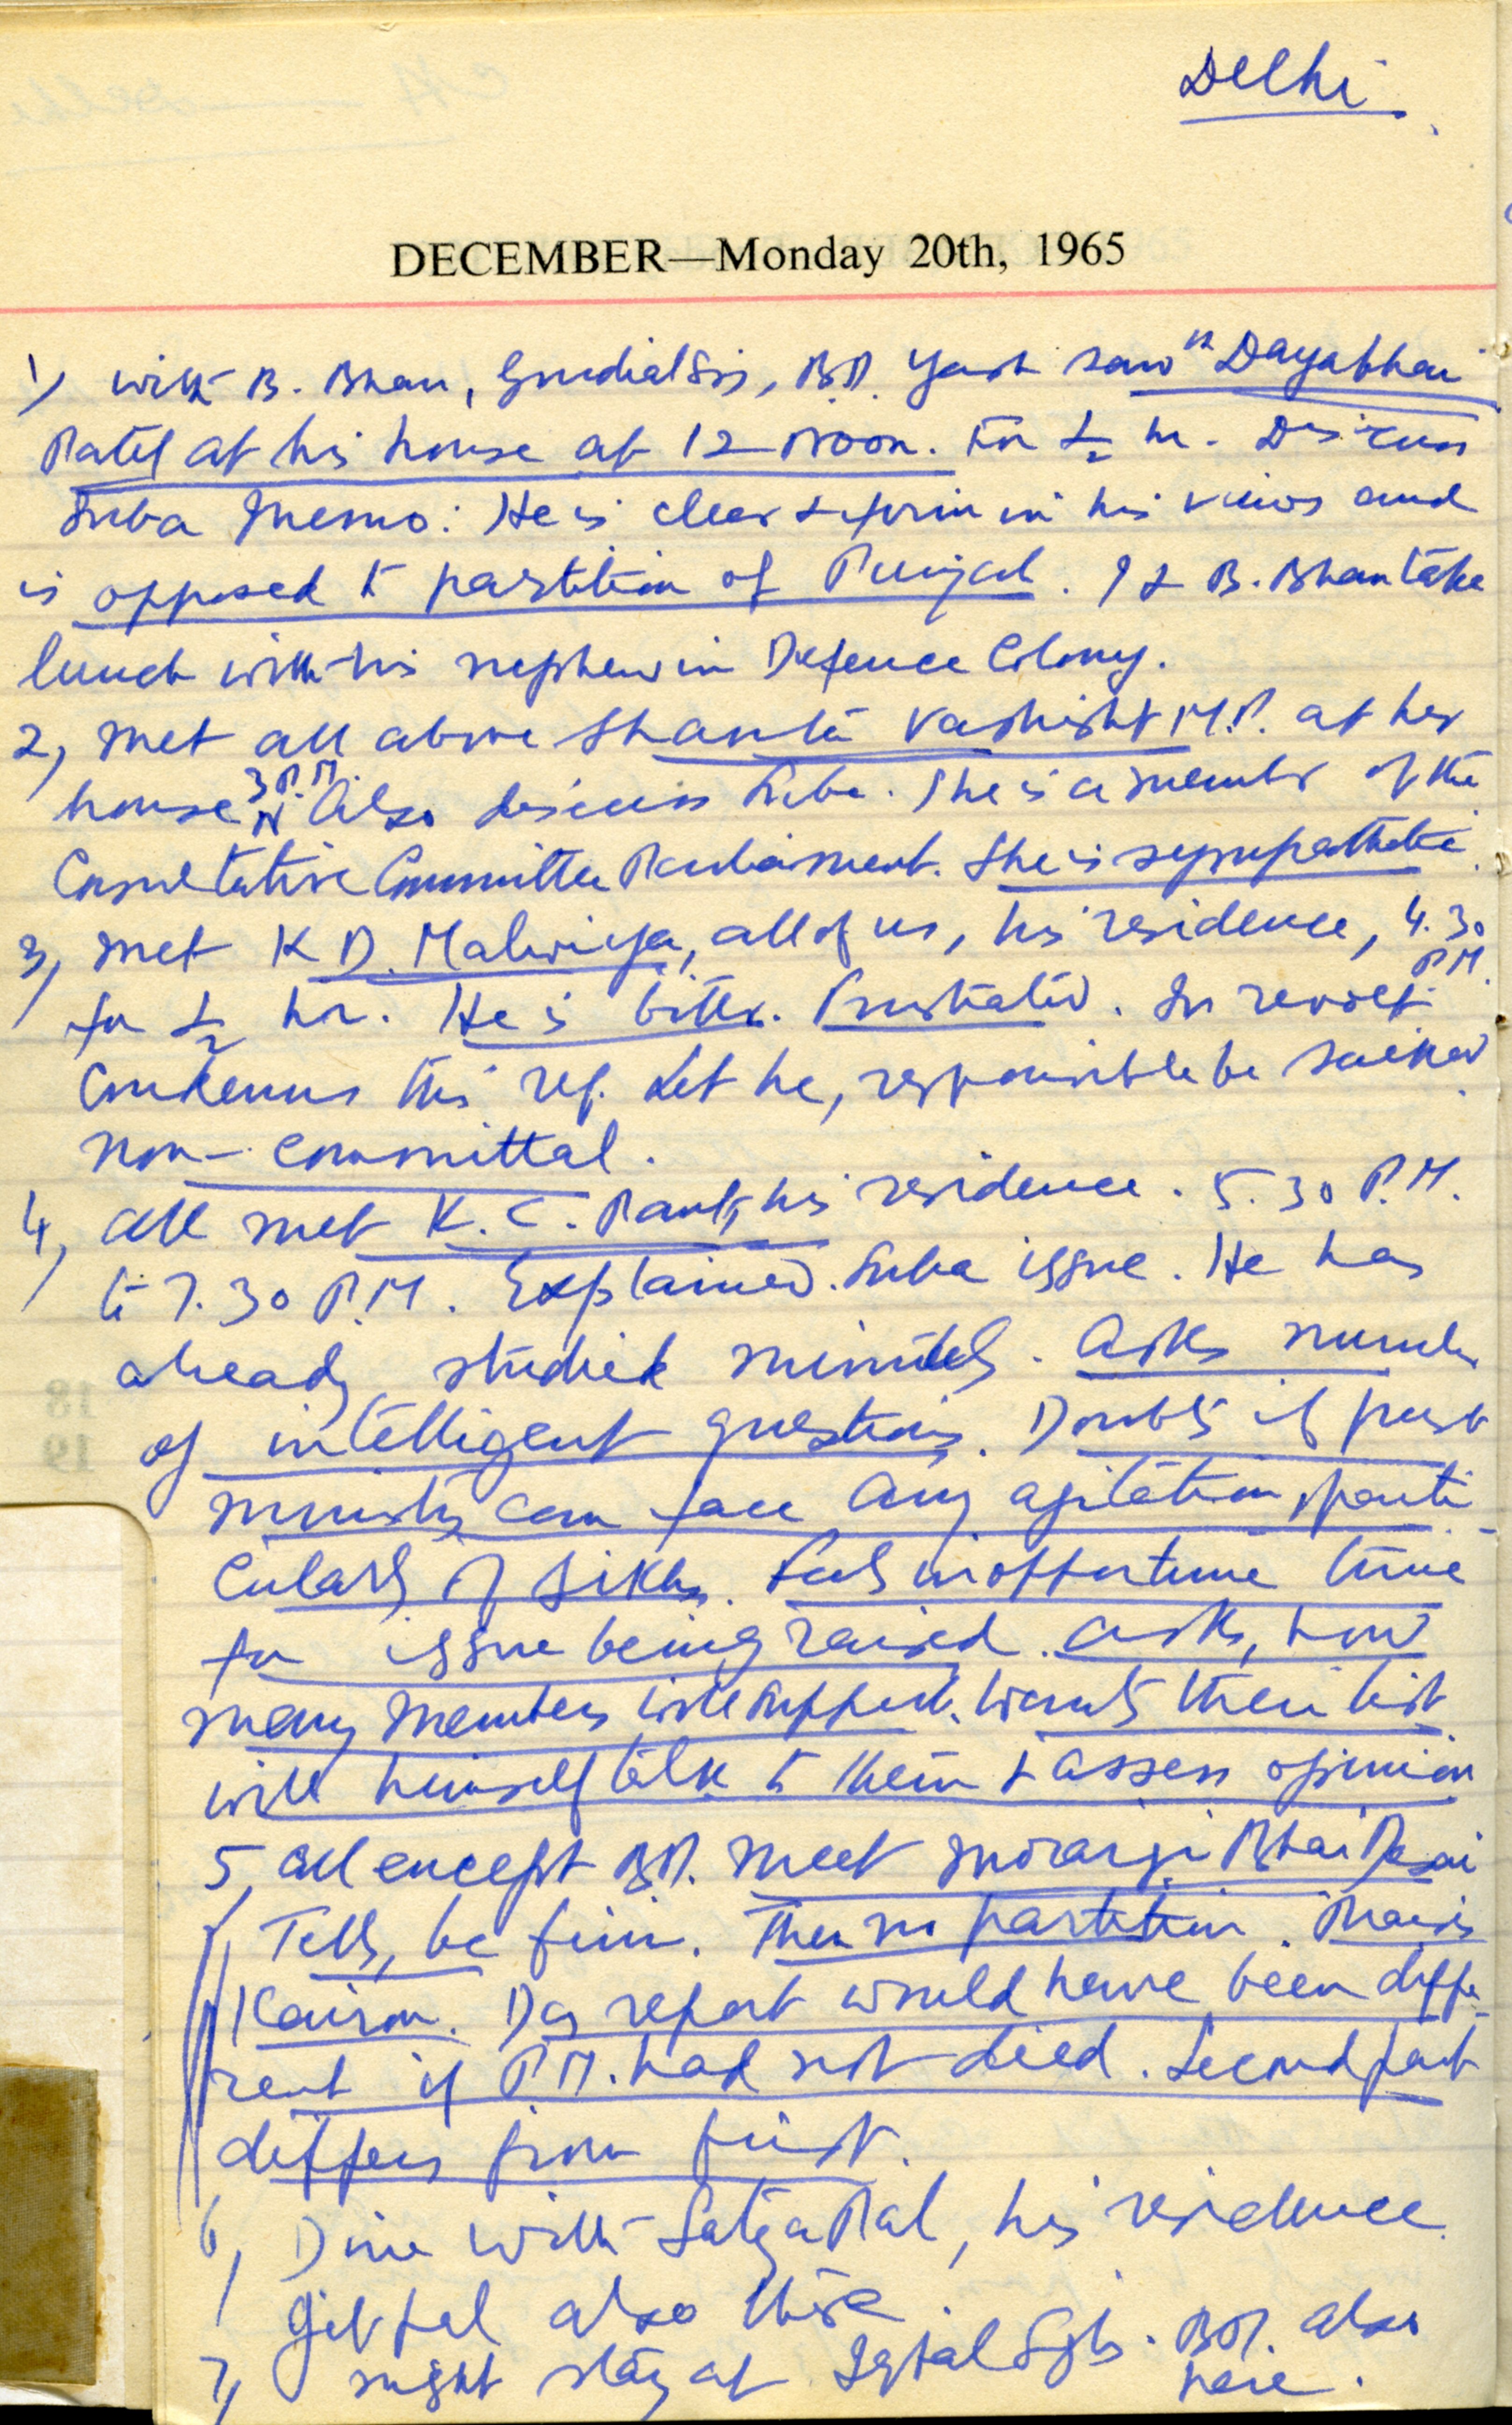 Delhi
DECEMBER—Monday 20th, 1965
1) With B. Bhan, Gurdial , B.P. Yash saw "Dayabhai
Patel at his house at 12 Noon. For ½ hr. Discuss
Suba Memo: He is clear & firm in his views and
is opposed to partition of Punjab. I & B. Bhan take
lunch with his nephew in Defence Colony.
2, Met all above Shanta Vashisht M.P. at her
house 3 P.M. Also discuss Suba. She is a member of the
Consultative Committee Parliament. She is sympathetic.
3, Met K D. Malviya, all of us, his residence, 4.30 P.M.
for ½ hr. He is bitter. Frustrated. In revolt.
Condemns this rep. Let he, responsible be sacked
non-committal.
4, All met K. C. Pant, his residence. 5.30 P.M.
to 7.30 P.M. Explained. Suba issue. He has
already studied minutely. Asks number
of intelligent questions. Doubts if present
ministry can face any agitation, parti-
cularly of Sikhs. Feels inopportune time
for issue being raised. Asks, how
many members will support. Wants their list
will himself talk to them & assess opinion
5, All except B.P. meet Morarji Bhai Desai
Tells, be firm. Then no partition. Praises
Kairon. Das report would have been diffe-
rent if P.M. had not died. Second part
differs from first.
6, Dine with Satya Pal, his residence.
also there.
7, Night stay at Iqbal . B.P. also
here.